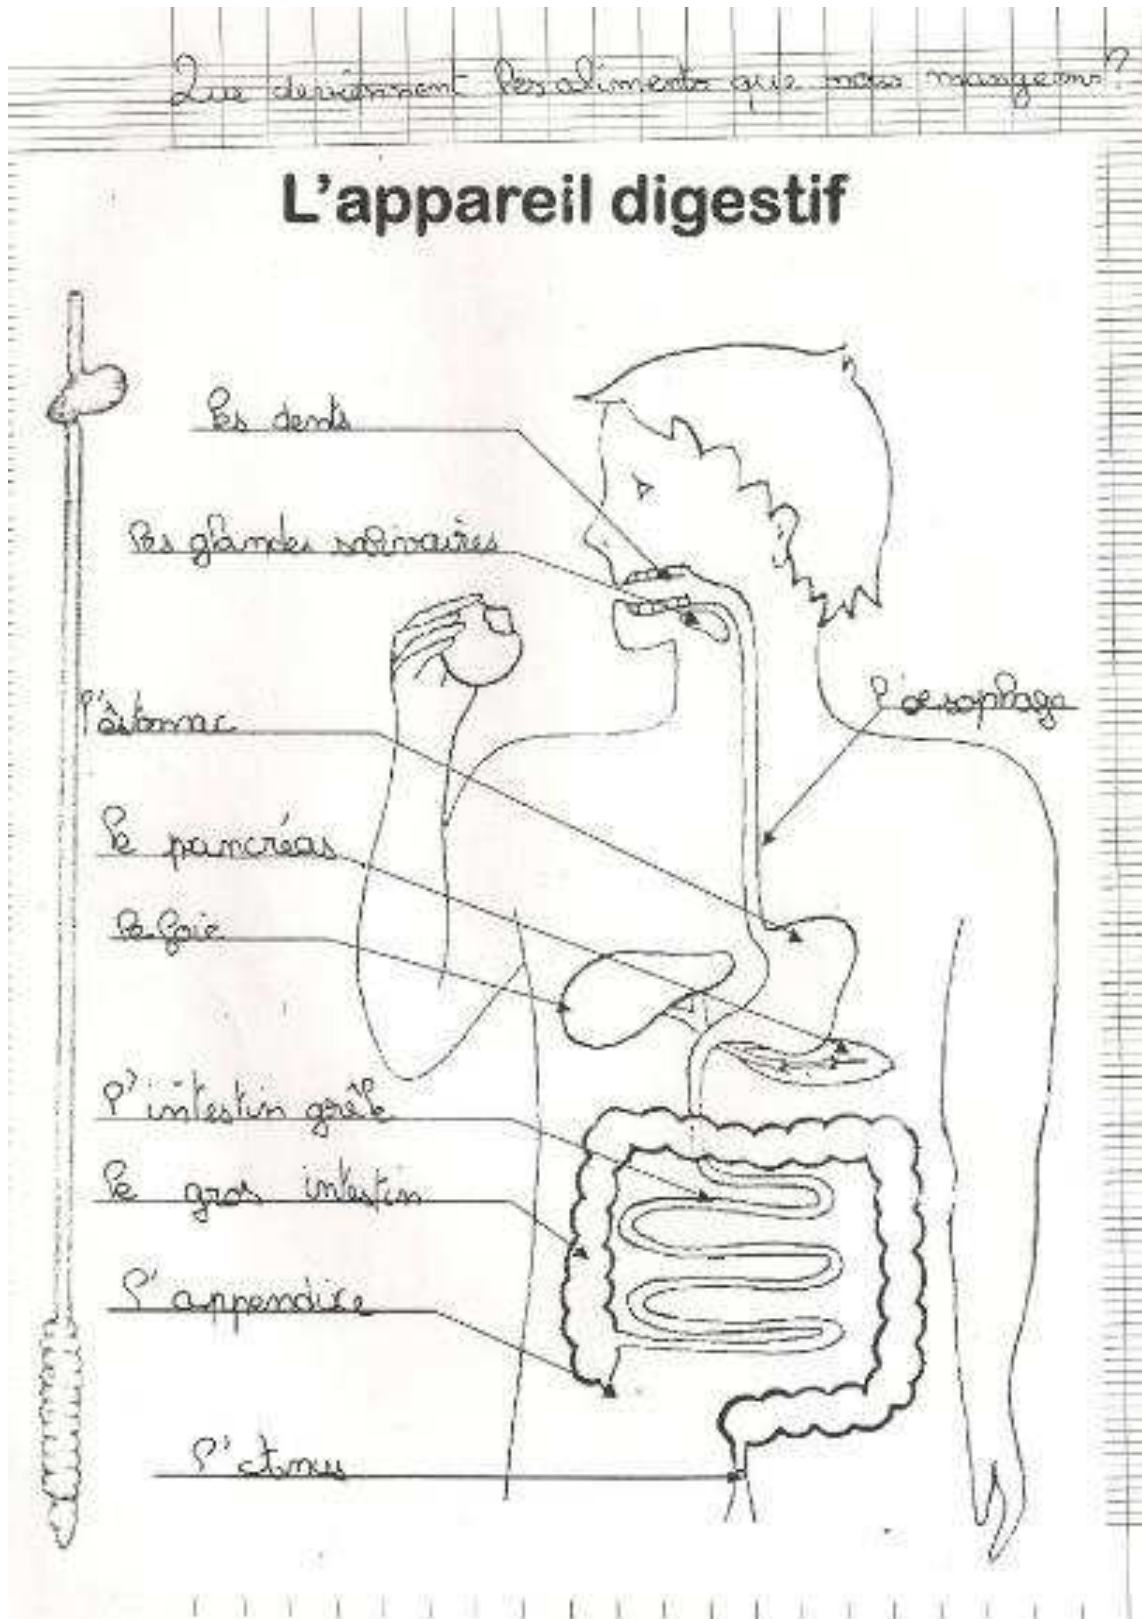 Que deviennent les aliments que nous mangeons?
L'appareil digestif
les dents
les glandes salivaires
l'oesophage
l'estomac
le pancréas
le foie
l'intestin grêle
le gros intestin
l'appendice
l'anus